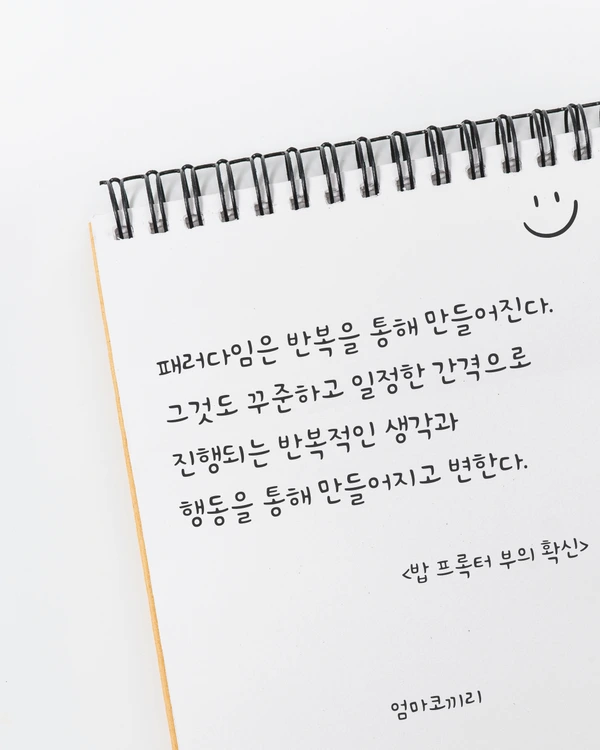 패러다임은 반복을 통해 만들어진다.
그것도 꾸준하고 일정한 간격으로
진행되는 반복적인 생각과
행동을 통해 만들어지고 변한다.
<밥 프록터 부의 확신>
엄마코끼리